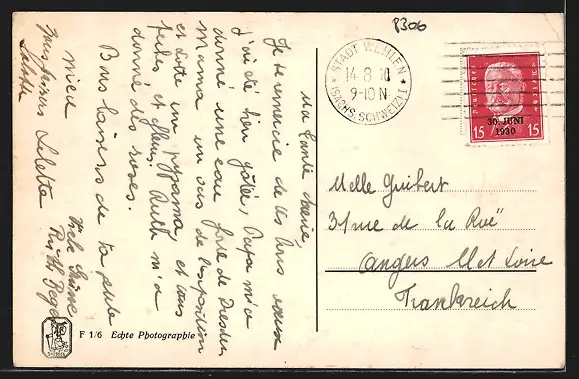 B306
STADT WEHLEN
14.8.30
9-10 N
(SÄCHS. SCHWEIZ)
30. JUNI
1930
15 15
Melle Guibert
31 rue de la Roë
Angers M et Loire
Frankreich
Ma tante chérie,
Je te remercie de tes bons vœux
j'ai été bien gâtée, Papa m'a
donné une eau forte de Dresden
Maman un vase de l'exposition
et Lotte un pyjama, et des
et fleurs. Ruth m'a
donné des roses.
Bons baisers de ta petite
nièce
Lolotte
Viele Grüße
Ruth
F 1/6 Echte Photographie